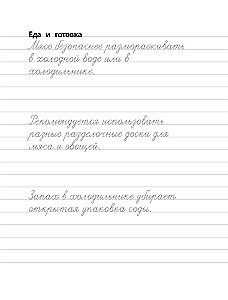 Еда и готовка
Мясо безопаснее размораживать
в холодной воде или в
холодильнике.
Рекомендуется использовать
разные разделочные доски для
мяса и овощей.
Запах в холодильнике убирает
открытая упаковка соды.